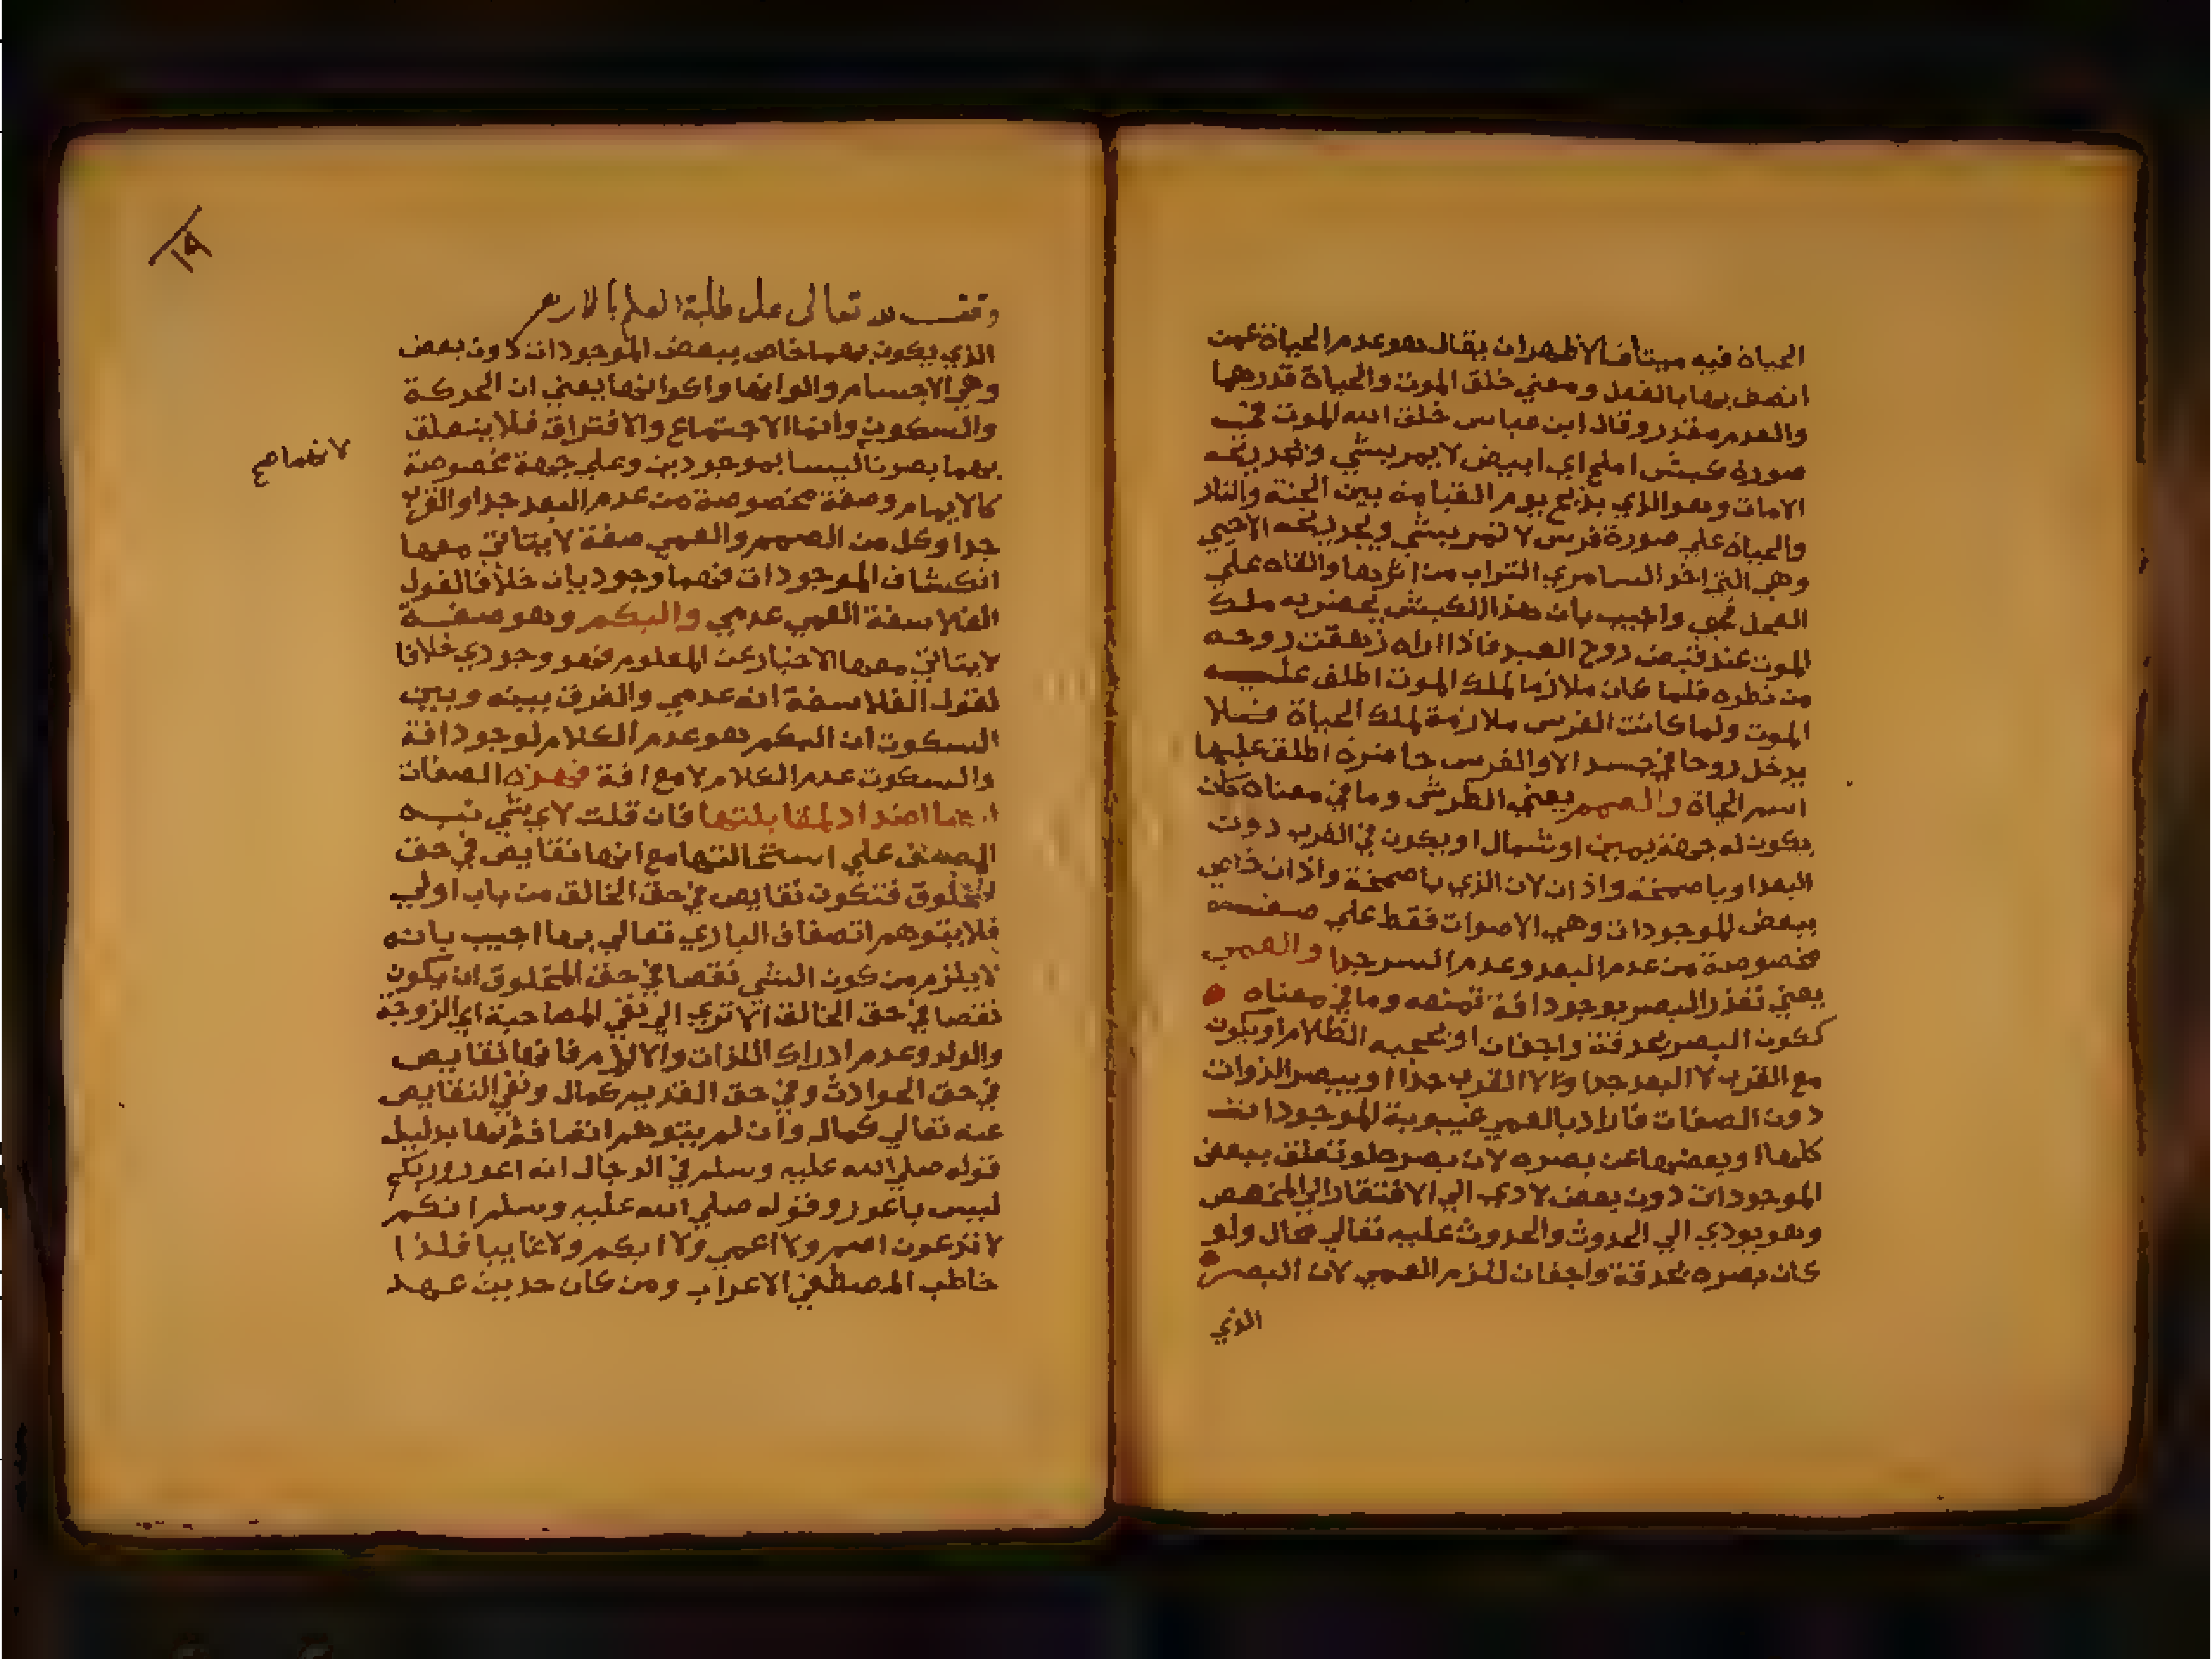 الحياة فيه ميتا فالاظهر ان يقال هو عدم الحياة عمن
اتصف بها بالفعل ومعني خلق الموت والحياة قدرهما
والعدم مقدر وقال ابن عباس خلق الله الموت في
صورة كبش املح اي ابيض لا يمر بشي ولا يجد ريحه
الامات وهو الذي يذبح يوم القيامة بين الجنة والنار
والحياة علي صورة فرس لا تمر بشي ويجد ريحه الاحيي
وهي التي اخذ السامري التراب من اثرها والقاه علي
العجل فحيي واجيب بان هذا الكبش يحضر به ملك
الموت عند قبض روح العبد فاذا اراه زهقت روحه
من نظره فلما كان ملازما لملك الموت اطلق عليه
الموت ولما كانت الفرس ملازمة لملك الحياة فلا
يدخل روحا في جسد الا والفرس حاضرة اطلق عليها
اسم الحياة والصمم يعني الطرش وما في معناه كان
يكون له جهة يمين او شمال او يكون في القرب دون
البعد او باصمخة واذان لان الذي باصمخة واذان خاص
ببعض الموجودات وهي الاصوات فقط علي صفة
مخصوصة من عدم البعد وعدم السر جدا والعمي
يعني تعذر البصر بوجود افة تمنعه وما في معناه
ككون البصر بحدقة واجفان او يحجبه الظلام او يكون
مع القرب لا البعد جدا ولا القرب جدا او يبصر الذوات
دون الصفات فاراد بالعمي غيبوبة الموجودات
كلها او بعضها عن بصره لان بصره لو تعلق ببعض
الموجودات دون بعض لادي الي الافتقار الي المخصص
وهو يودي الي الحدوث والحدوث عليه تعالي محال ولو
كان بصره بحدقة واجفان للزم العمي لان البصر
الذي
١٩
وقف لله تعالى على طلبة العلم بالازهر
الذي يكون بهما خاص ببعض الموجودات دون بعض
وهي الاجسام والوانها واكوانها يعني ان الحركة
والسكون وانما الاجتماع والافتراق فلا يتعلق
بهما بصرنا ليسا بموجودين وعلي جهة مخصوصة
كالامام وصفة مخصوصة من عدم البعد جدا والقرب
جدا وكل من الصمم والعمي صفة لا يتاتي معها
انكشاف الموجودات فهما وجوديان خلافا لقول
الفلاسفة العمي عدمي والبكم وهو صفة
لا يتاتي معها الاخبار عن المعلوم فهو وجودي خلافا
لقول الفلاسفة انه عدمي والفرق بينه وبين
السكوت ان البكم هو عدم الكلام لوجود افة
والسكوت عدم الكلام لا مع افة فهذه الصفات
انما اضداد لمقابلتها فان قلت لاي شي نبه
المصنف علي استحالتها مع انها نقايص في حق
المخلوق فتكون نقايص في حق الخالق من باب اولي
فلا يتوهم اتصاف الباري تعالي بها اجيب بانه
لا يلزم من كون الشي نقصا في حق المخلوق ان يكون
نقصا في حق الخالق الا تري الي نفي المصاحبة اي الزوجة
والولد وعدم ادراك اللذات والالام فانها نقايص
في حق الحوادث وفي حق القديم كمال ونفي النقايص
عنه تعالي كمال وان لم يتوهم اتصافه بها بدليل
قوله صلي الله عليه وسلم في الدجال انه اعور وربكم
ليس باعور وقوله صلي الله عليه وسلم انكم
لا تدعون اصم ولا اعمي ولا ابكم ولا غايبا فلذا
خاطب المصطفي الاعراب ومن كان حديث عهد